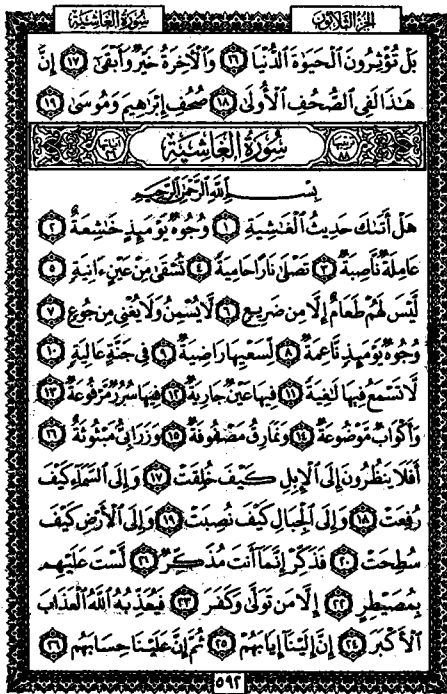 الجزء الثلاثون سورة الغاشية
بَلْ تُؤْثِرُونَ الْحَيَوٰةَ الدُّنْيَا ١٦ وَالْآخِرَةُ خَيْرٌ وَأَبْقَىٰ ١٧ إِنَّ
هَـٰذَا لَفِى الصُّحُفِ الْأُولَىٰ ١٨ صُحُفِ إِبْرَٰهِيمَ وَمُوسَىٰ ١٩
ترتيبها ٨٨ سُورَةُ الْغَاشِيَةِ آياتها ٢٦
بِسْمِ اللَّهِ الرَّحْمَٰنِ الرَّحِيمِ
هَلْ أَتَىٰكَ حَدِيثُ الْغَـٰشِيَةِ ١ وُجُوهٌ يَوْمَئِذٍ خَـٰشِعَةٌ ٢
عَامِلَةٌ نَّاصِبَةٌ ٣ تَصْلَىٰ نَارًا حَامِيَةً ٤ تُسْقَىٰ مِنْ عَيْنٍ ءَانِيَةٍ ٥
لَّيْسَ لَهُمْ طَعَامٌ إِلَّا مِن ضَرِيعٍ ٦ لَّا يُسْمِنُ وَلَا يُغْنِى مِن جُوعٍ ٧
وُجُوهٌ يَوْمَئِذٍ نَّاعِمَةٌ ٨ لِّسَعْيِهَا رَاضِيَةٌ ٩ فِى جَنَّةٍ عَالِيَةٍ ١٠
لَّا تَسْمَعُ فِيهَا لَـٰغِيَةً ١١ فِيهَا عَيْنٌ جَارِيَةٌ ١٢ فِيهَا سُرُرٌ مَّرْفُوعَةٌ ١٣
وَأَكْوَابٌ مَّوْضُوعَةٌ ١٤ وَنَمَارِقُ مَصْفُوفَةٌ ١٥ وَزَرَابِىُّ مَبْثُوثَةٌ ١٦
أَفَلَا يَنظُرُونَ إِلَى الْإِبِلِ كَيْفَ خُلِقَتْ ١٧ وَإِلَى السَّمَآءِ كَيْفَ
رُفِعَتْ ١٨ وَإِلَى الْجِبَالِ كَيْفَ نُصِبَتْ ١٩ وَإِلَى الْأَرْضِ كَيْفَ
سُطِحَتْ ٢٠ فَذَكِّرْ إِنَّمَآ أَنتَ مُذَكِّرٌ ٢١ لَّسْتَ عَلَيْهِم
بِمُصَيْطِرٍ ٢٢ إِلَّا مَن تَوَلَّىٰ وَكَفَرَ ٢٣ فَيُعَذِّبُهُ اللَّهُ الْعَذَابَ
الْأَكْبَرَ ٢٤ إِنَّ إِلَيْنَآ إِيَابَهُمْ ٢٥ ثُمَّ إِنَّ عَلَيْنَا حِسَابَهُم ٢٦
٥٩٢